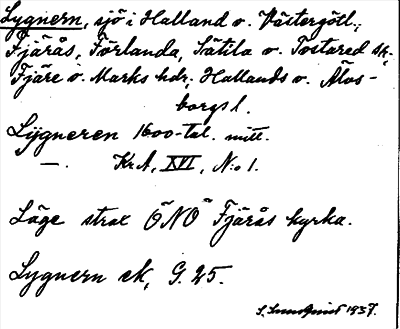 Lygnern, sjö i Halland o. Västergötl.;
Fjärås, Förlanda, Sätila o. Tostared sk;
Fjäre o. Marks hdr; Hallands o. Älvs-
borgs l.
Lygneren 1600-tal. mitt.
—. KrA, XVI, N:o 1.
Läge strax ÖNÖ Fjärås kyrka.
Lygnern ek, G. 25.
S. Lundquist 1937.